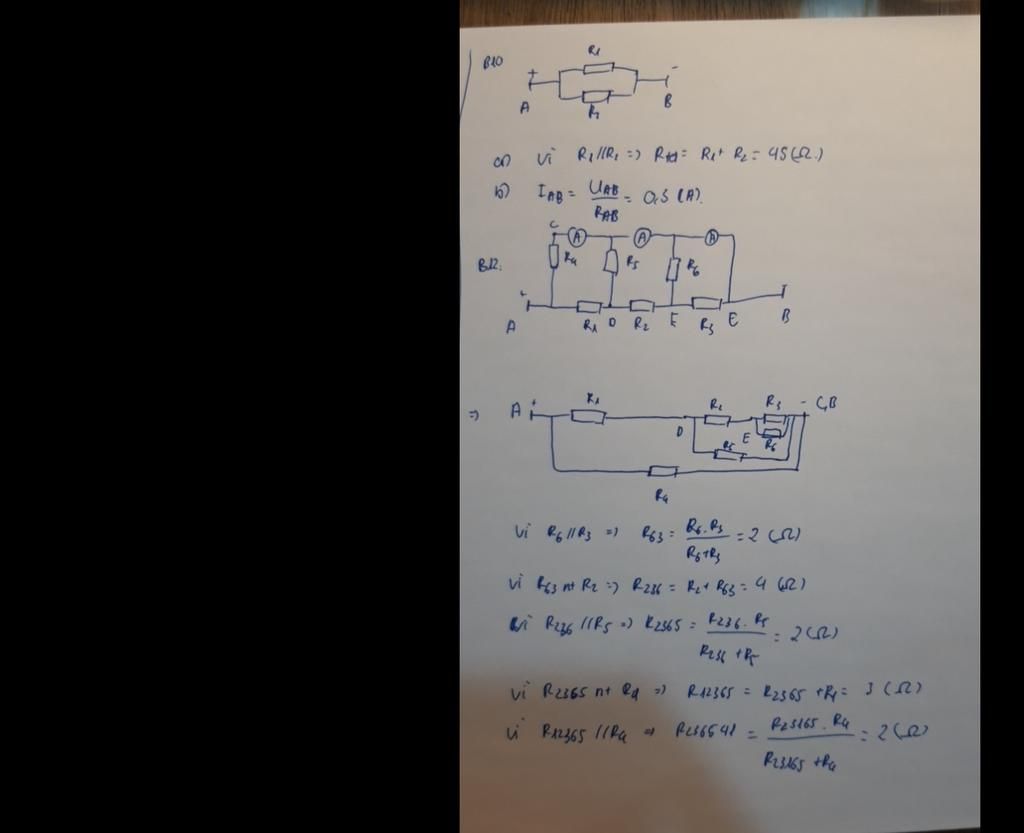 B10
R1
+ -
A B
R2
a) Vì R1//R2 => = R1 + R2 = 45(Ω.)
b) IAB = UAB/RAB = 0,5 (A).
C A A A
B12. R4 R5 R6
+
A R1 D R2 E R3 E B
=> A + R1 R2 R3 - C,B
D E R6
R5
R4
Vì R6//R3 => R63 = R6.R3/R6+R3 = 2 (Ω)
Vì R63 nt R2 => R236 = R2 + R63 = 4 (Ω)
Vì R236 //R5 => R2365 = R236 . R5/R236 + R5 = 2(Ω)
Vì R2365 nt R1 => R12365 = R2365 + R1 = 3 (Ω)
Vì R12365 //R4 => R236541 = R23165 . R4/R23165 + R4 = 2(Ω)